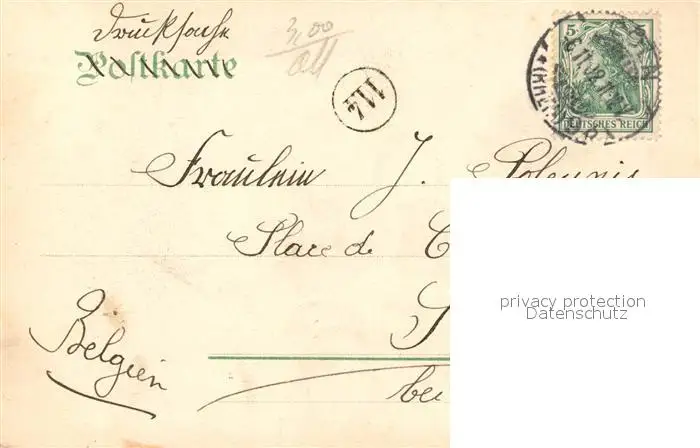 Drucksache
Postkarte
3,00
114
5
DEUTSCHES REICH
Fräulein J.
Place de C
S
Belgien
bei
privacy protection
Datenschutz